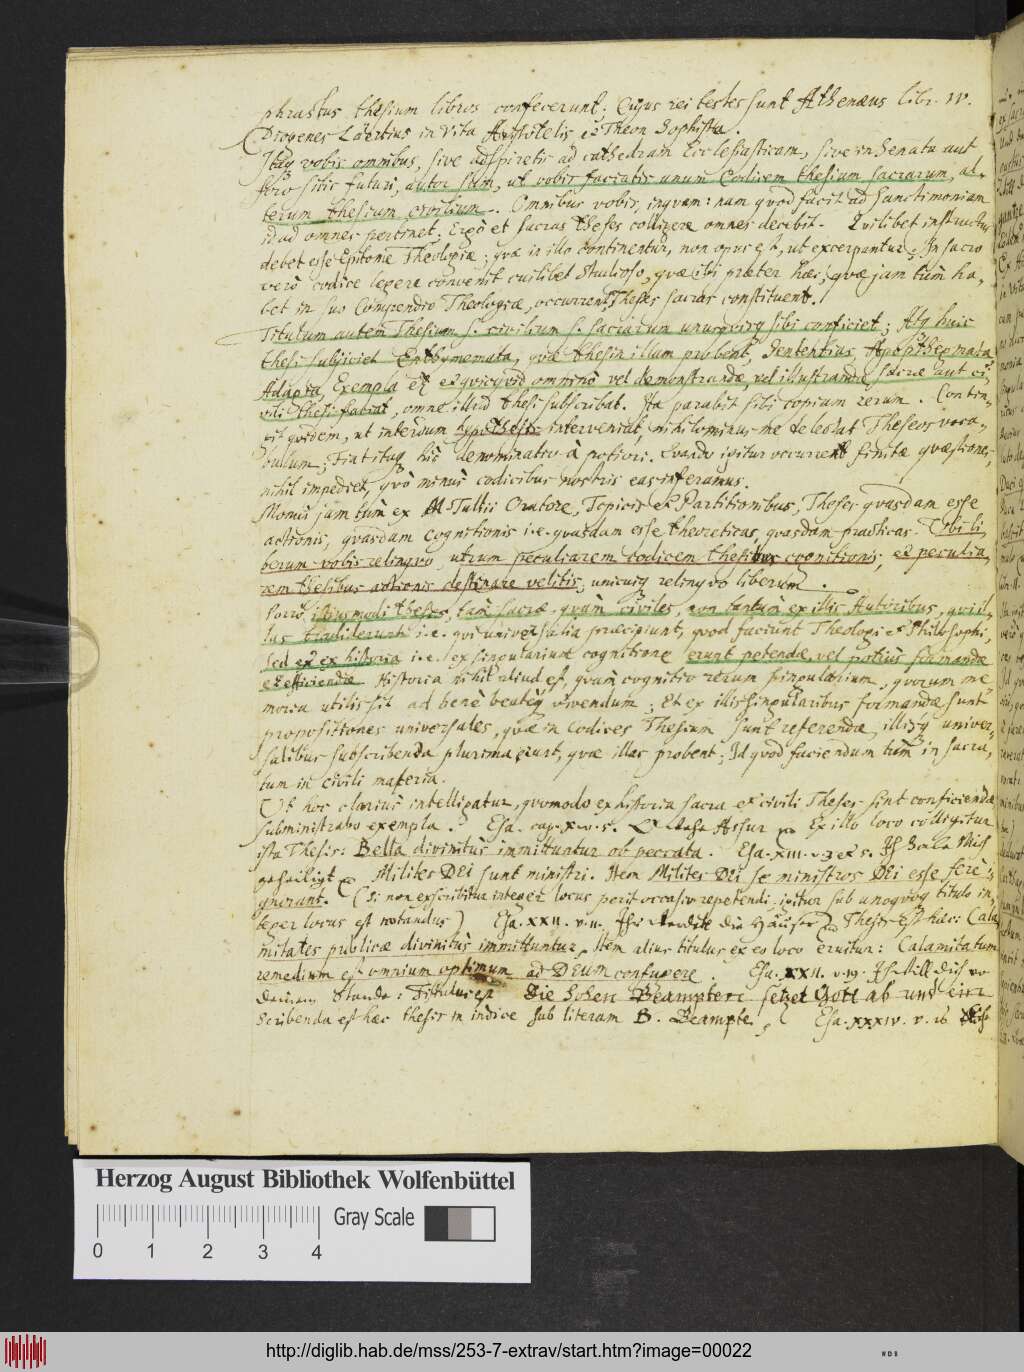 phrastus thesium libros confecerunt. Cujus rei testes sunt Athenæus libr. IV.
Diogenes Laërtius in vita Aristotelis et Theon Sophista.
Itaq vobis omnibus, sive adspiretis ad cathedram Ecclesiasticam, sive in Senatu aut
foro sitis futuri, autor sum, ut vobis faciatis unum Codicem thesium sacrarum, al-
terum thesium civilium. Omnibus vobis, inquam: nam quod facit ad sanctimoniam
id ad omnes pertinet. Ergò et sacras theses colligere omnes decebit. Quilibet instructus
debet esse Epitome Theologiæ; quæ in illo continentur, non opus est, ut excerpantur. In sacro
verò codice legere convenit cuilibet studioso, quæ ibi præter hæc, quæ jam tùm ha-
bet in suo Compendio Theologiæ, occurrent, Theses sacras constituent.
Titulum autem Thesium s. civilium s. sacrarum unusquisq sibi conficiet; Atq huic
thesi subjiciet Enthymemata, quæ thesin illam probent, Sententias, Apophthegmata,
Adagia, Exempla et quicquid omninò vel demonstrandæ, vel illustrandæ sacræ aut ci-
vili thesi faciat, omne illud thesi subscribat. Ita parabit sibi copiam rerum. Contin-
git quidem, ut interdum hypothesis interveniat, nihilominus me delectat Theseos voca-
bulum; Fiat itaq hîc denominatio à potiori. Quando igitur occurrent finitæ quæstiones,
nihil impediet, quò minùs codicibus nostris eas inferamus.
Monui jam tùm ex M. Tullii Oratore, Topicis et Partitionibus, Theses quasdam esse
actionis, quasdam cognitionis i.e. quasdam esse theoreticas, quasdam practicas. Ibi li-
berum vobis relinquo, utrum peculiarem codicem thesibus cognitionis, et peculia-
rem thesibus actionis destinare velitis; unicuiq relinquo liberum.
Porrò istiusmodi theses, tàm sacræ quàm civiles, non tantùm ex illis Autoribus, qui il-
las tradiderunt i.e. qui universalia præcipiunt, quod faciunt Theologi et Philosophi,
sed et ex historia i.e. ex singularium cognitione erunt petendæ, vel potiùs formandæ
et efficiendæ. Historia nihil aliud est, quàm cognitio rerum singularium, quorum me-
moria utilis sit ad benè beateq vivendum; Et ex illis singularibus formandæ sunt
propositiones universales, quæ in Codices Thesium sunt referendæ, illisq univer-
salibus subscribenda plurima erunt, quæ illas probent; Id quod faciendum tùm in sacra,
tum in civili materia.
Ut hoc clariùs intelligatur, quomodo ex historia sacra et civili Theses sint conficiendæ
subministrabo exempla. Esa. cap. X. v. 5. O Wehe Assur Ex illo loco colligitur
ista Thesis: Bella divinitùs immittuntur ob peccata. Esa. XIII. v. 3 et 5. Ich habe Mich
geheiligt Milites DEI sunt ministri. Item Milites DEI se ministros DEI esse ferè i-
gnorant. (Si non exscribitur integer locus per it occasio repetendi, igitur sub unoquoq titulo in-
teger locus est notandus) Esa. XXII. v. 11. Ihr werdet die Häuser Thesis Est hæc: Cala-
mitates publicæ divinitùs immittuntur, Item alius titulus ex eo loco eruitur: Calamitatum
remedium est omnium optimum ad DEUM confugere. Esa. XXII. v. 19. Ich will dich vo
deinem Stande: Titulus est Die hohen Beampten setzet Gott ab und ein
Scribenda est hæc thesis in indice sub literam B. Beampte, Esa. XXXIV. v. 16
Herzog August Bibliothek Wolfenbüttel
Gray Scale
0 1 2 3 4
http://diglib.hab.de/mss/253-7-extrav/start.htm?image=00022
WDB